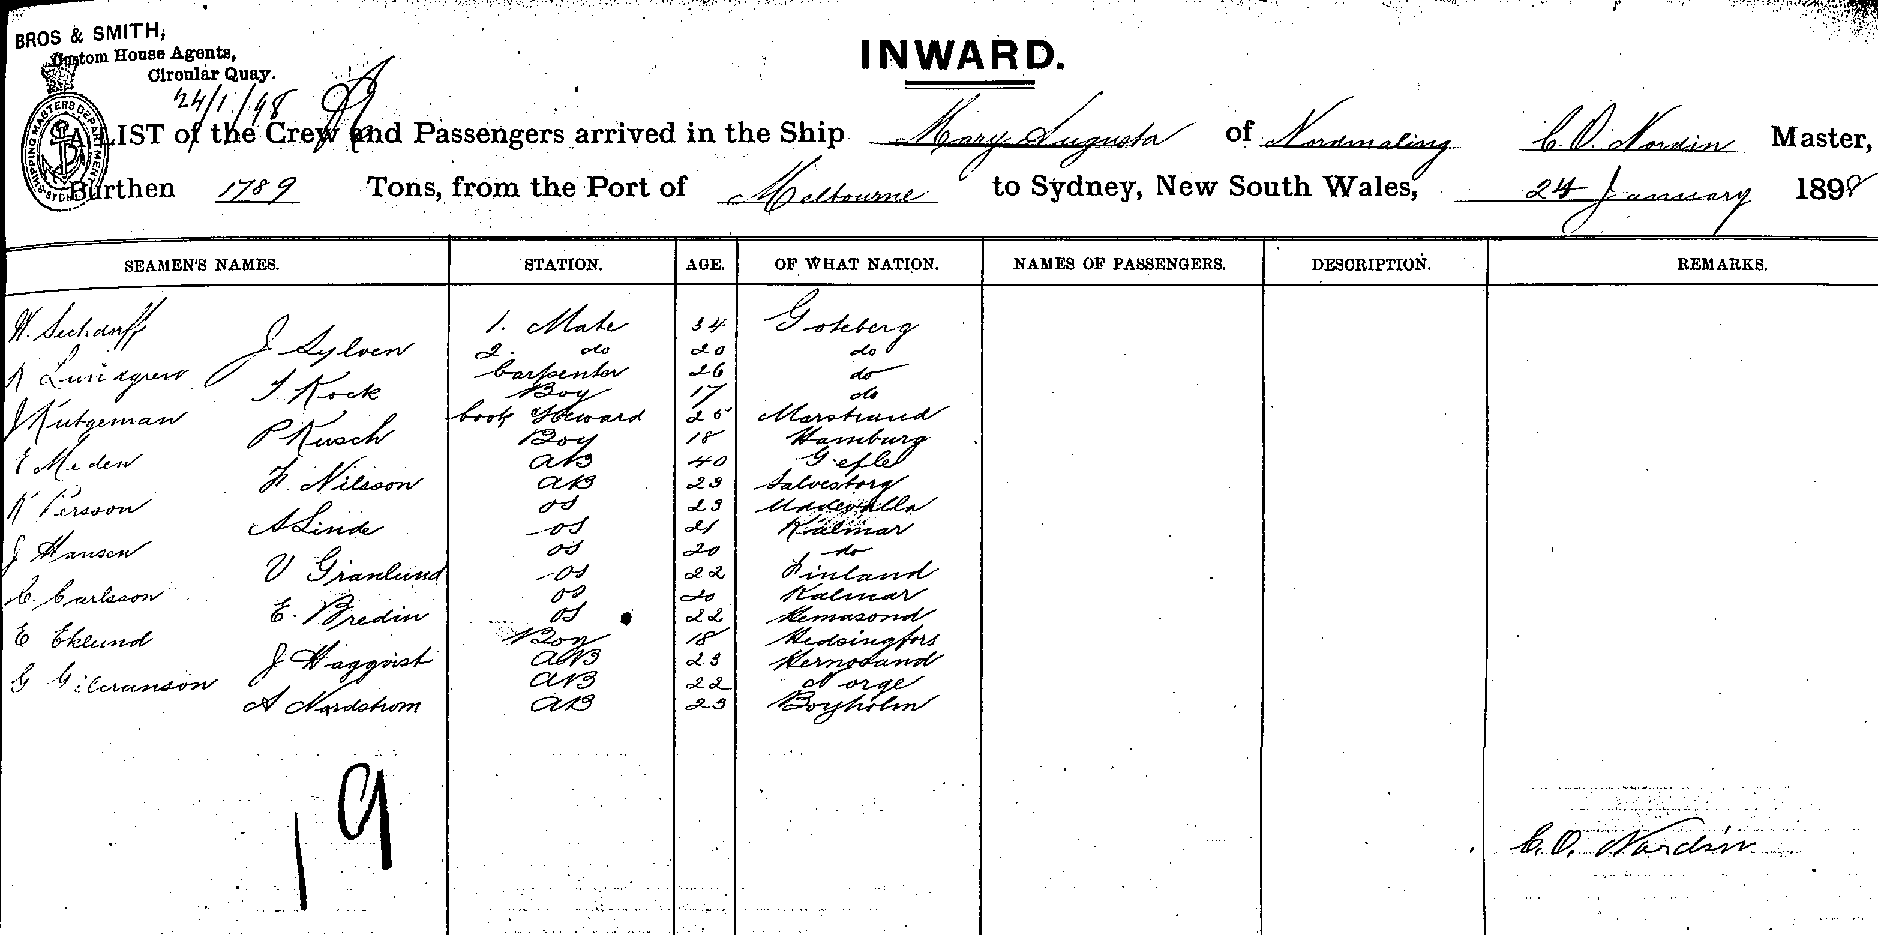 BROS & SMITH,
Custom House Agents,
Circular Quay.
24/1/98
INWARD.
A LIST of the Crew and Passengers arrived in the Ship Mary Augusta of Nordmaling C. O. Nordin Master,
Burthen 1789 Tons, from the Port of Melbourne to Sydney, New South Wales, 24 January 1898
SHIPPING MASTERS DEPARTMENT SYDNEY
SEAMEN'S NAMES. STATION. AGE. OF WHAT NATION. NAMES OF PASSENGERS. DESCRIPTION. REMARKS.
1. Mate 34 Goteberg
J Sylven 2. do 20 do
Lundgren Carpenter 26 do
Kock Boy 17 do
J Kutgeman Cook Steward 25 Marstrand
P Kusch Boy 18 Hamburg
E Meden AB 40 Gefle
Nilsson AB 23
K Persson OS 23 Uddevalla
A Linde OS 21 Kalmar
J Hansen OS 20 do
V Granlund OS 22 Finland
C Carlsson OS 20 Kalmar
E. Bredin OS 22 Hernasond
E Eklund Boy 18 Hedsingfors
J Haggvist AB 23 Hernosand
G AB 22 Norge
A Nordstrom AB 23 Borgholm
19
C. O. Nordin